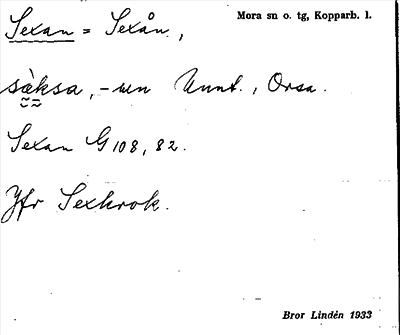 Sexan = Sexån,
Mora sn o. tg, Kopparb. l.
sàksa, -un Unnt., Orsa.
Sexan G 108, 82.
Jfr Sexkrok.
Bror Lindén 1933